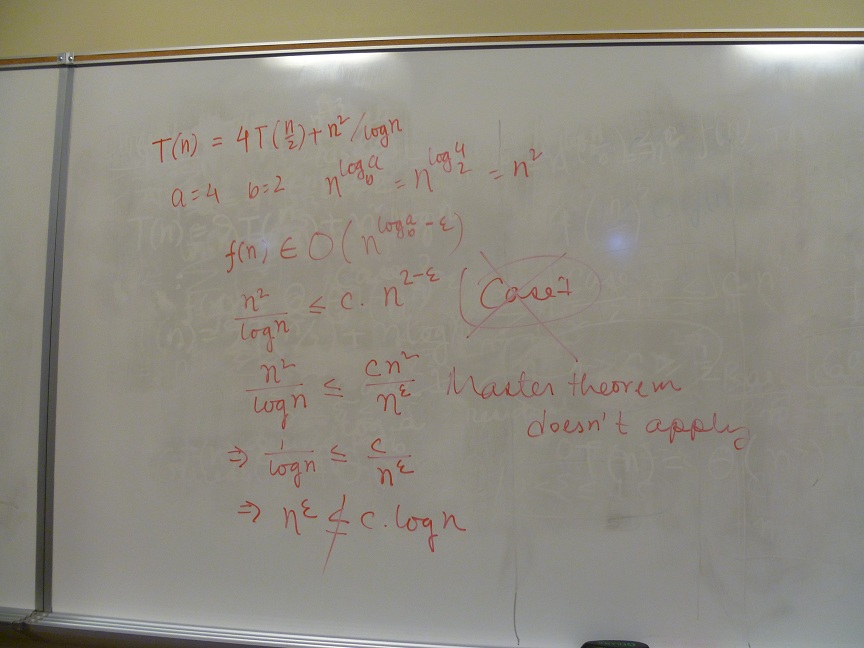 T(n) = 4T(n/2) + n²/logn
a=4 b=2 n^log_b a = n^log_2 4 = n²
f(n) ∈ O(n^log_b a - ε)
n²/logn ≤ c. n^2-ε (Case1
n²/logn ≤ cn²/n^ε Master theorem
doesn't apply
⇒ 1/logn ≤ c/n^ε
⇒ n^ε ≰ c.logn